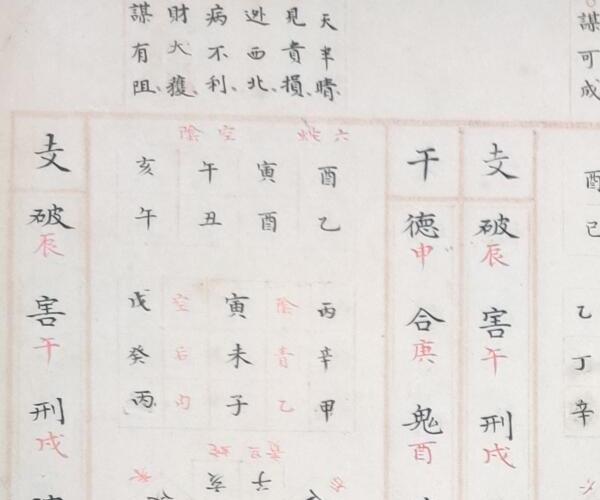 謀可成
天半晴、
見貴損、
逃西北、
病不利、
財大獲
謀有阻、
酉己
乙丁辛
支
破辰
害午
刑戌
干
德申
合庚
鬼酉
六蛇空陰
酉乙
寅酉
午丑
亥午
丙辛甲
陰青
寅未子
空后
戊癸丙
子亥
支
破辰
害午
刑戌